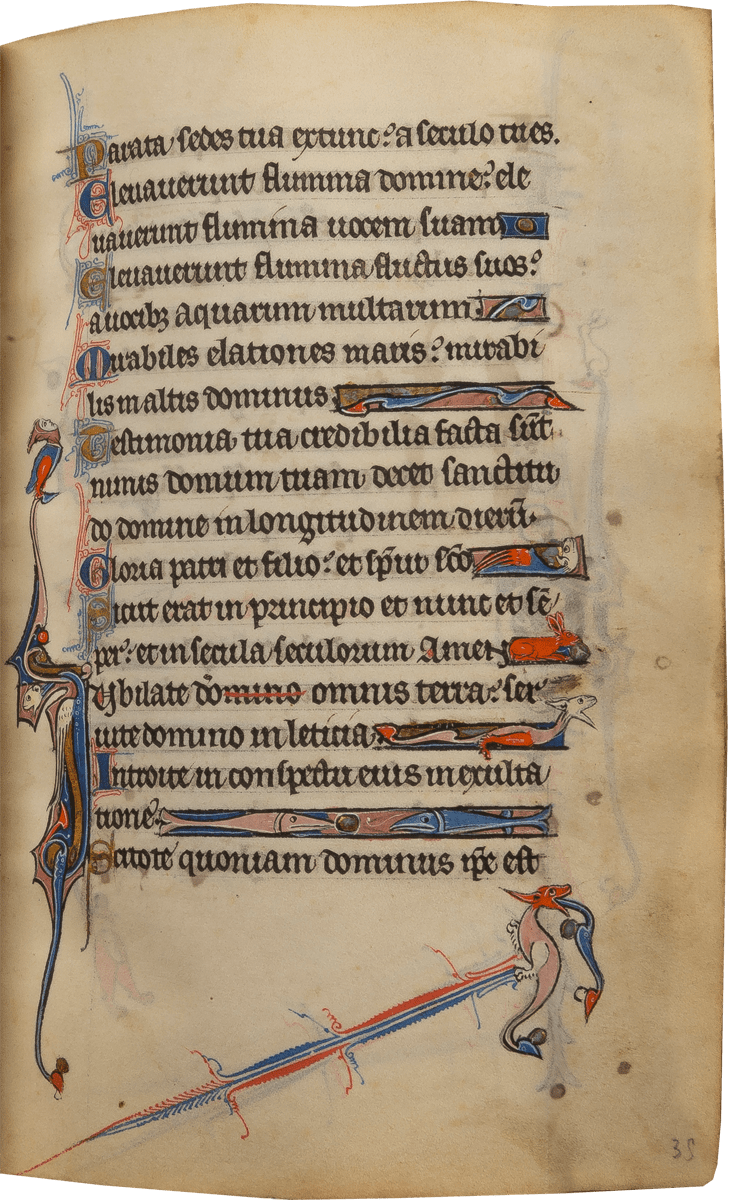 Parata sedes tua extunc: a seculo tu es.
Eleuauerunt flumina domine: ele
uauerunt flumina uocem suam
Eleuauerunt flumina fluctus suos:
a uocibꝫ aquarum multarum
Mirabiles elationes maris: mirabi
lis in altis dominus
Testimonia tua credibilia facta sūt
nimis domum tuam decet sanctitu
do domine in longitudinem dierū.
Gloria patri et filio: et sp̄ui sc̄o
Sicut erat in principio et nunc et sē
per: et in secula seculorum Amen
Iubilate do domino omnis terra: ser
uite domino in leticia
Introite in conspectu eius in exulta
tione.
Scitote quoniam dominus ip̄e est
35